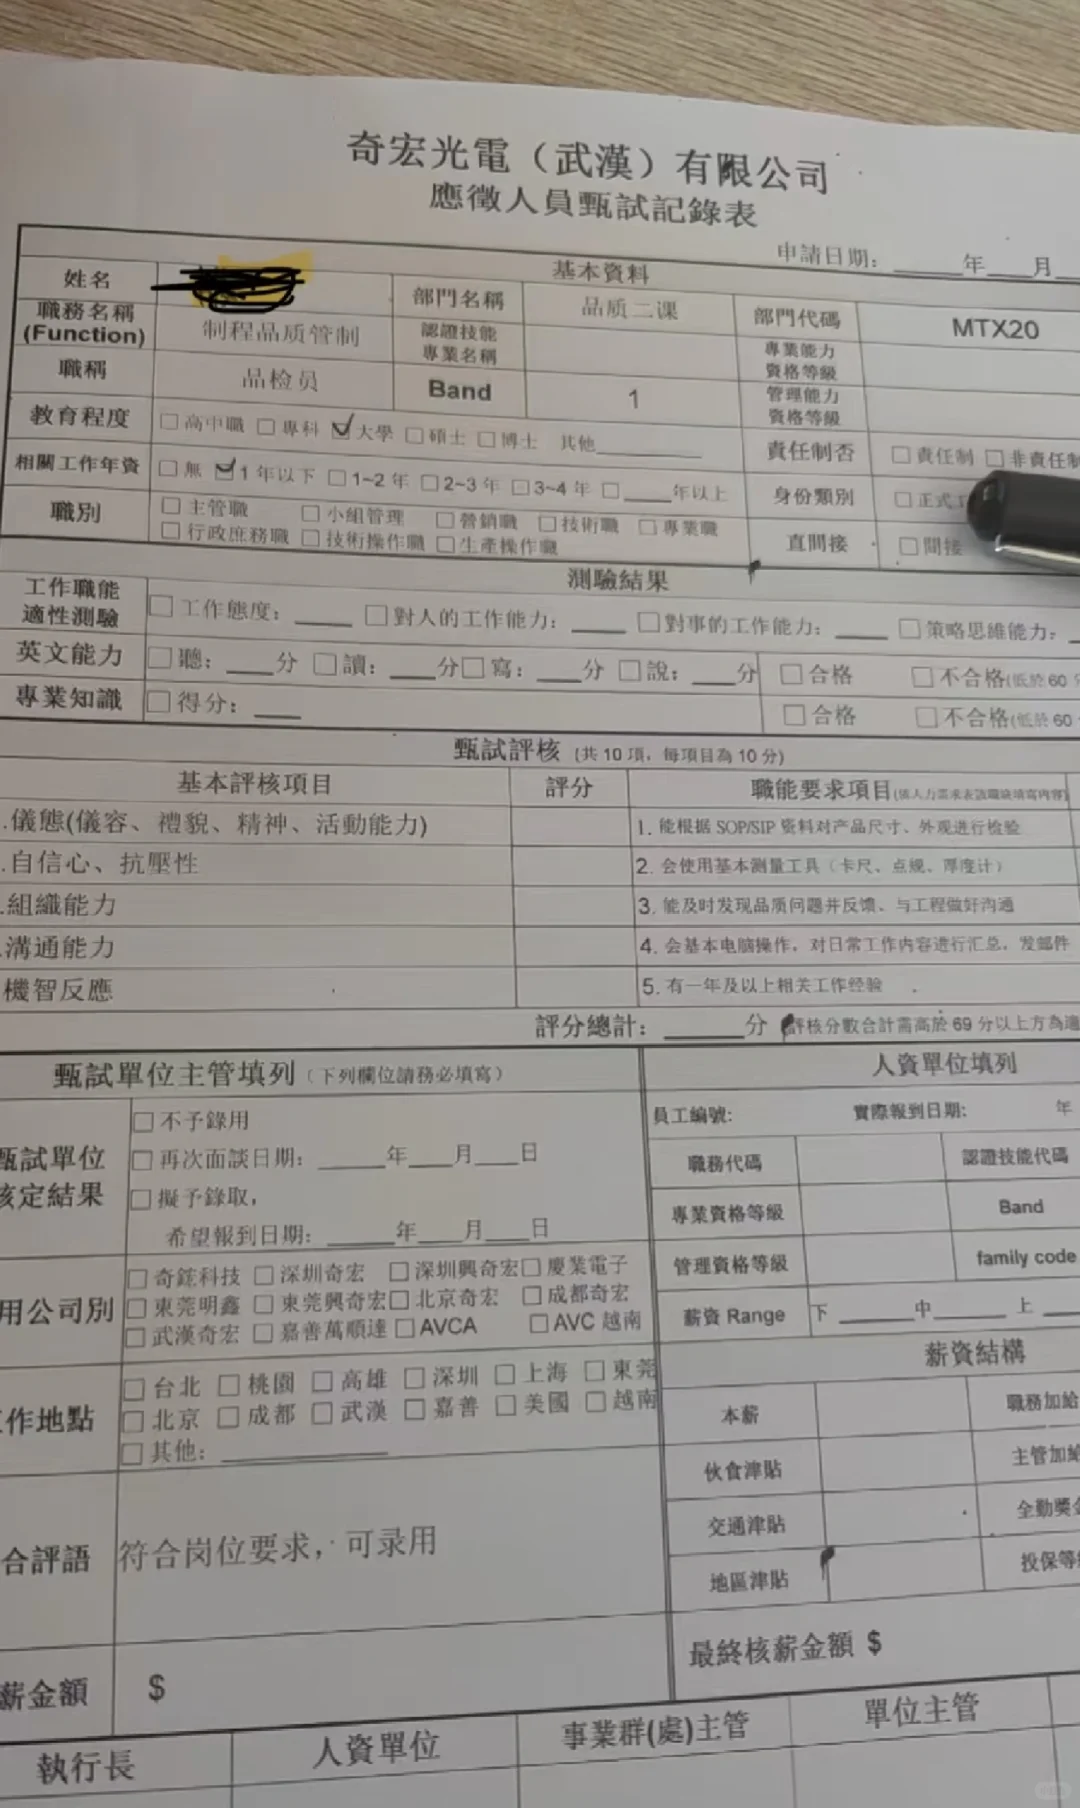 奇宏光電（武漢）有限公司
應徵人員甄試記錄表
申請日期：＿＿年＿＿月
基本資料
姓名 部門名稱 品质二课 部門代碼 MTX20
職務名稱(Function) 制程品质管制 認證技能專業名稱 專業能力資格等級
職稱 品检员 Band 1 管理能力資格等級
教育程度 □高中職 □專科 ☑大學 □碩士 □博士 其他＿＿ 責任制否 □責任制 □非責任制
相關工作年資 □無 ☑1年以下 □1~2年 □2~3年 □3~4年 □＿＿年以上 身份類別 □正式
職別 □主管職 □小組管理 □營銷職 □技術職 □專業職
□行政庶務職 □技術操作職 □生產操作職 直間接 □間接
測驗結果
工作職能適性測驗 □工作態度：＿＿ □對人的工作能力：＿＿ □對事的工作能力：＿＿ □策略思維能力：
英文能力 □聽：＿＿分 □讀：＿＿分 □寫：＿＿分 □說：＿＿分 □合格 □不合格(低於60
專業知識 □得分：＿＿ □合格 □不合格(低於60
甄試評核 (共10項，每項目為10分)
基本評核項目 評分 職能要求項目
.儀態(儀容、禮貌、精神、活動能力) 1. 能根据SOP/SIP资料对产品尺寸、外观进行检验
.自信心、抗壓性 2. 会使用基本测量工具（卡尺、点规、厚度计）
.組織能力 3. 能及时发现品质问题并反馈、与工程做好沟通
.溝通能力 4. 会基本电脑操作，对日常工作内容进行汇总，发邮件
機智反應 5. 有一年及以上相关工作经验
評分總計：＿＿分 評核分數合計需高於69分以上方為適
甄試單位主管填列（下列欄位請務必填寫） 人資單位填列
甄試單位核定結果 □不予錄用
□再次面談日期：＿＿年＿＿月＿＿日
□擬予錄取，
希望報到日期：＿＿年＿＿月＿＿日
員工編號： 實際報到日期： 年
職務代碼 認證技能代碼
專業資格等級 Band
管理資格等級 family code
薪資 Range 下＿＿中＿＿上
用公司別 □奇鋐科技 □深圳奇宏 □深圳興奇宏 □慶業電子
□東莞明鑫 □東莞興奇宏 □北京奇宏 □成都奇宏
□武漢奇宏 □嘉善萬順達 □AVCA □AVC 越南
作地點 □台北 □桃園 □高雄 □深圳 □上海 □東莞
□北京 □成都 □武漢 □嘉善 □美國 □越南
□其他：＿＿
薪資結構
本薪 職務加給
伙食津貼 主管加給
交通津貼 全勤獎金
地區津貼 投保等
合評語 符合岗位要求，可录用
薪金額 $ 最終核薪金額 $
執行長 人資單位 事業群(處)主管 單位主管